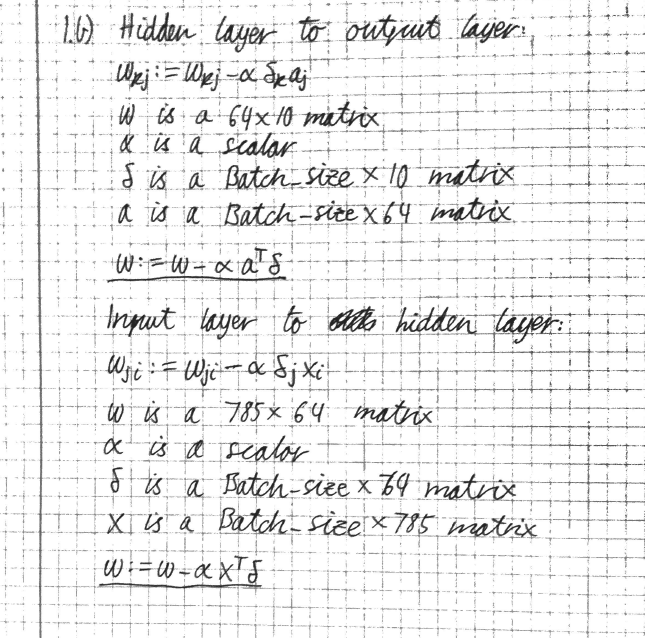 1.b) Hidden layer to output layer:
w_kj := w_kj - α δ_k a_j
w is a 64×10 matrix
α is a scalar
δ is a Batch-size × 10 matrix
a is a Batch-size × 64 matrix
w := w - α aᵀ δ
Input layer to hidden layer:
w_ji := w_ji - α δ_j x_i
w is a 785 × 64 matrix
α is a scalar
δ is a Batch-size × 64 matrix
X is a Batch-size × 785 matrix
w := w - α Xᵀ δ